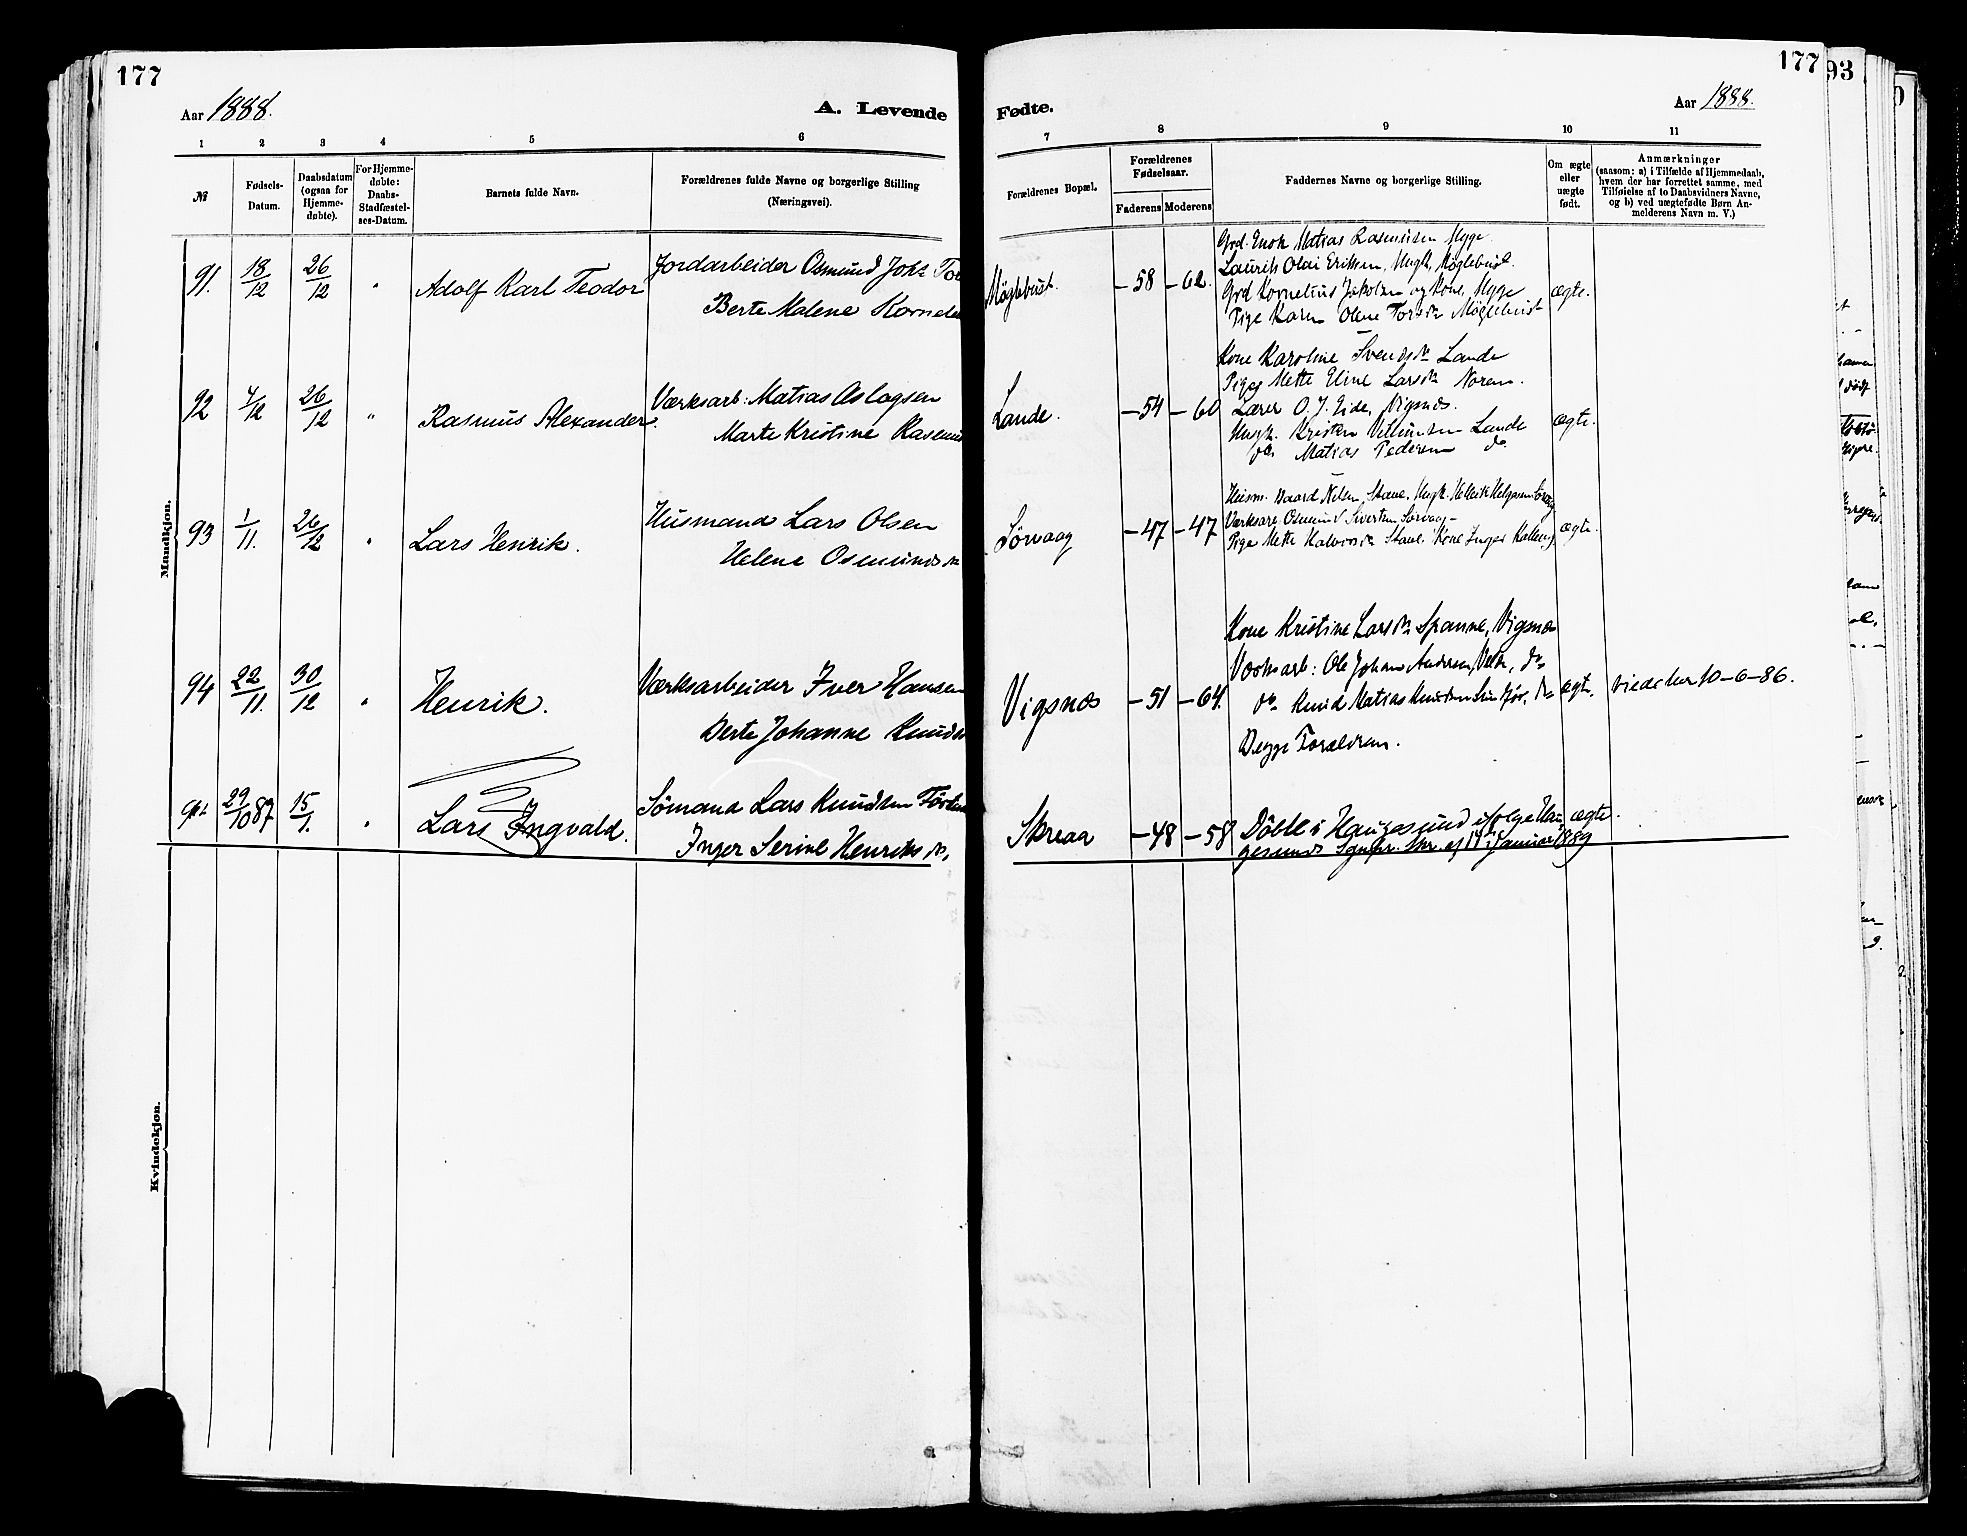 177
177
93
Aar 1888.
A. Levende
Fødte.
Aar 1888.
1 2 3 4 5 6
7 8 9 10 11
№
Fødsels-
Datum.
Daabsdatum
(ogsaa for
Hjemme-
døbte).
For Hjemme-
døbte:
Daabs-
Stadfæstel-
ses-Datum.
Barnets fulde Navn.
Forældrenes fulde Navne og borgerlige Stilling
(Næringsvei).
Forældrenes Bopæl.
Forældrenes
Fødselsaar.
Faderens Moderens
Faddernes Navne og borgerlige Stilling.
Om ægte
eller
uægte
født.
Anmærkninger
(saasom: a) i Tilfælde af Hjemmedaab,
hvem der har forrettet samme, med
Tilføielse af to Daabsvidners Navne,
og b) ved uægtefødte Børn An-
melderens Navn m. V.)
Mundkjøn.
91. 18/12 26/12 " Adolf Karl Teodor
Jordarbeider Osmund Joh:
Berte Malene
Møglebust. -58 -62.
Grd. Enok Matias Rasmussen Myge
Laurits Olai Eriksen, Ungk, Møglebust.
Grd Kornelius Jakobsen og Kone, Myge
Pige Karen Olene Torsdr Møglebust
ægte.
92 4/12 26/12 " Rasmus Alexander.
Værksarb: Matias Aslagsen
Marte Kristine
Lande. -54 -60
Kone Karoline Svendsdr Lande
Piges Mette Eline Larsdr Norem.
Lærer O. J. Eide, Vigsnes.
Ungk. Kristen Lande
do. Matias Pedersen do
ægte.
93 1/11. 26/12 " Lars Henrik.
Husmand Lars Olsen
Helene Osmundsdr
Sørvaag -47 -47
Husm. Baard Nilsen, Stave, Ungk. Helgesen
Osmund Sivertsen Sørvaag
Pige Mette Stave. Kone Inger
ægte.
94 22/11. 30/12 " Henrik.
Værksarbeider Iver Hansen
Berte Johanne
Vigsnes -51 -64.
Kone Kristine Larsdr Spanne, Vigsnes
Værksarb: Ole Johan Andersen, do
do Knud Matias Knudsen do
Begge Forældrene.
ægte. viede her 10-6-86.
29/10 87 15/1. " Lars Ingvald.
Sømand Lars Knudsen
Inger Serine Henriksdr,
Skreaa -48 -58
Døbte i Haugesund ifølge Hau
gesunds Sgnpr. Skr. af Januar 1889
ægte.
Kvindekjøn.